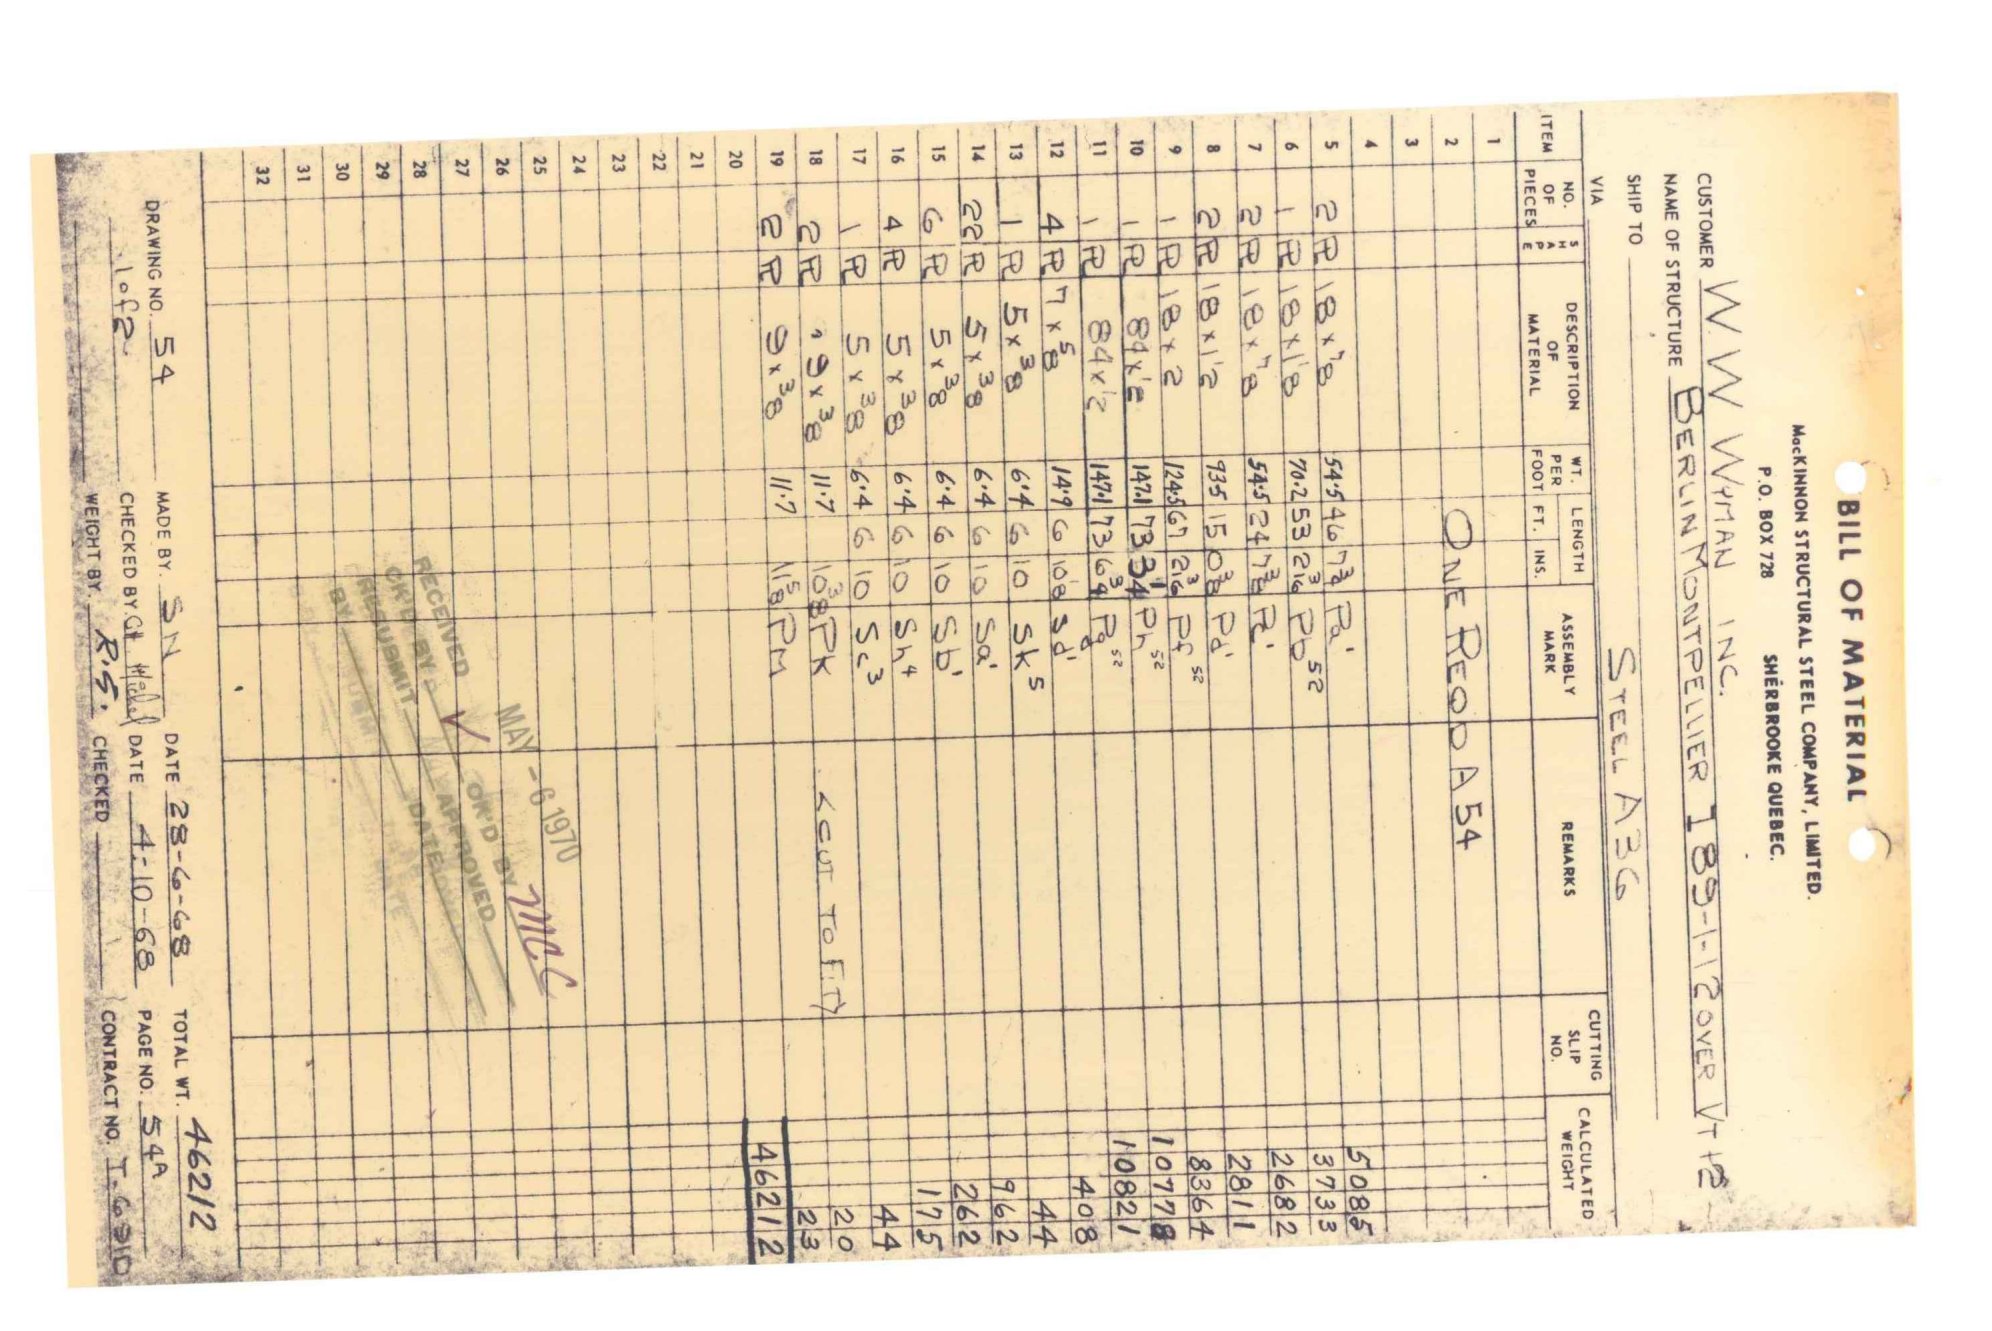 BILL OF MATERIAL
MacKINNON STRUCTURAL STEEL COMPANY, LIMITED.
P.O. BOX 728 SHERBROOKE QUEBEC.
CUSTOMER W. W. WYMAN INC.
NAME OF STRUCTURE BERLIN MONTPELLIER I 89-1-12 OVER VT 12
SHIP TO STEEL A36
VIA
ITEM NO. OF PIECES SHAPE DESCRIPTION OF MATERIAL WT. PER FOOT LENGTH FT. INS. ASSEMBLY MARK REMARKS CUTTING SLIP NO. CALCULATED WEIGHT
1
2 ONE REQD A54
3
4
5 2 PL 18 x 7/8 54.5 46 7 3/4 Pa' 5085
6 1 PL 18 x 1 1/8 70.2 53 2 3/16 Pb 52 3733
7 2 PL 18 x 7/8 54.5 24 7 3/8 Pc' 2682
8 2 PL 18 x 1 1/2 93.5 15 0 3/8 Pd' 2811
9 1 PL 18 x 2 124.5 67 2 3/16 Pf 52 8364
10 1 PL 84 x 1/2 147.1 73 3 1/4 Ph 52 10778
11 1 PL 84 x 1/2 147.1 73 6 3/4 Pg 52 10821
12 4 PL 7 x 5/8 14.9 6 10 1/8 Sd' 408
13 1 PL 5 x 3/8 6.4 6 10 Sk 5 44
14 22 PL 5 x 3/8 6.4 6 10 Sa' 962
15 6 PL 5 x 3/8 6.4 6 10 Sb' 262
16 4 PL 5 x 3/8 6.4 6 10 Sh 4 175
17 1 PL 5 x 3/8 6.4 6 10 Sc 3 44
18 2 PL 9 x 3/8 11.7 10 3/8 PK <CUT TO FIT> 20
19 2 PL 9 x 3/8 11.7 11 5/8 PM 23
46212
20
21
22
23
24
25
26
27
28
29
30
31
32
MAY - 6 1970
RECEIVED
CK'D BY OK'D BY MCC
RESUBMIT APPROVED
BY DATE
DRAWING NO. 54 MADE BY. SN DATE 28-6-68 TOTAL WT. 46212
1 of 2 CHECKED BY DATE 4-10-68 PAGE NO. 54A
WEIGHT BY. R.S. CHECKED CONTRACT NO. T-6910